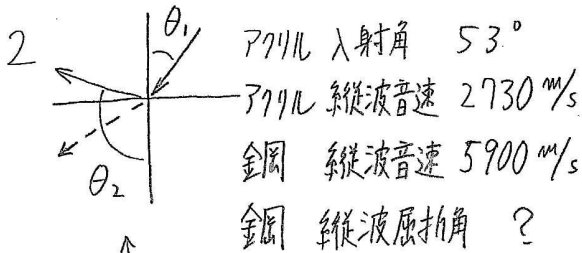 2
θ₁
アクリル 入射角 53°
アクリル 縦波音速 2730 m/s
鋼 縦波音速 5900 m/s
鋼 縦波屈折角 ?
θ₂